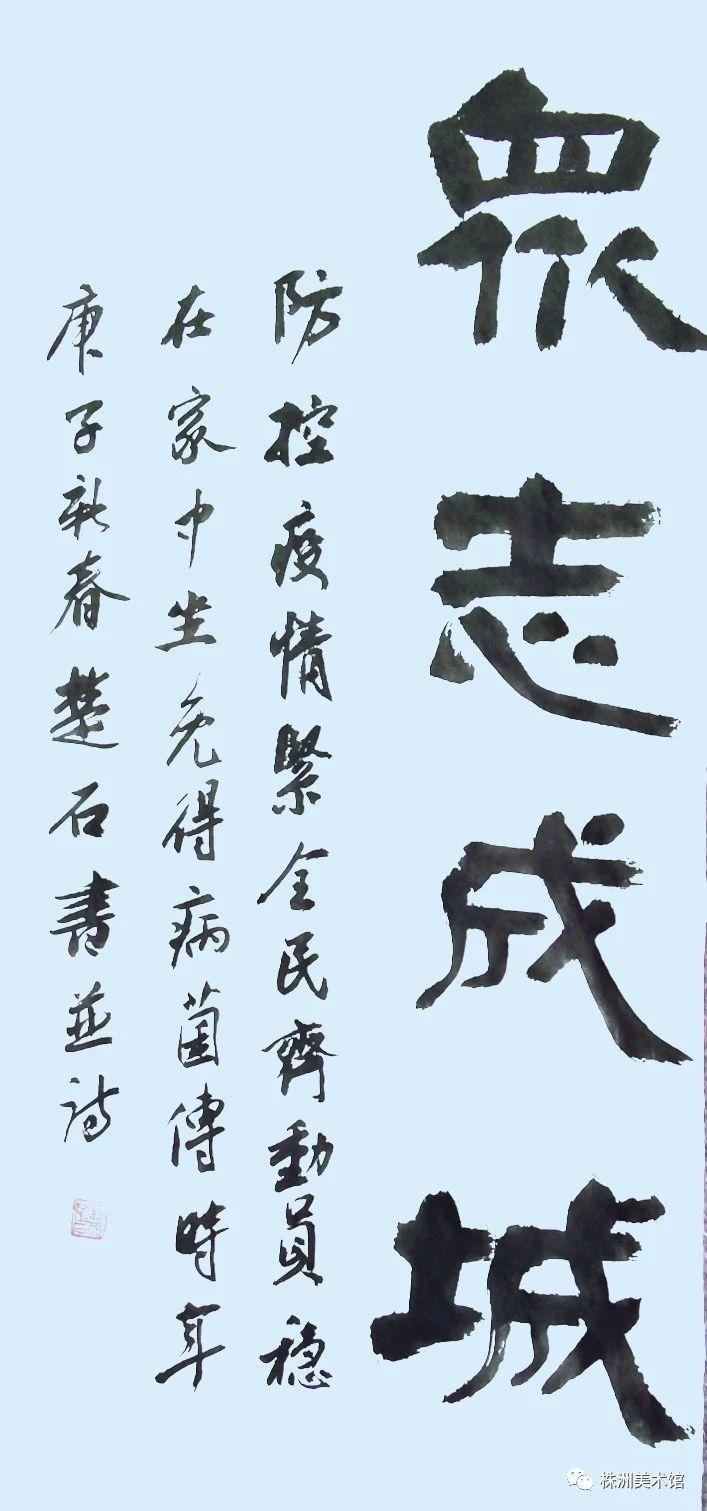 眾志成城
防控疫情緊全民齊動員稳
在家中坐免得病菌傳時年
庚子新春楚石書並詩
株洲美术馆